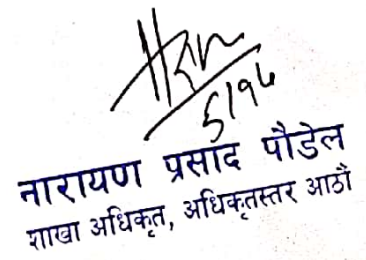 नारायण प्रसाद पौडेल
शाखा अधिकृत, अधिकृतस्तर आठौं